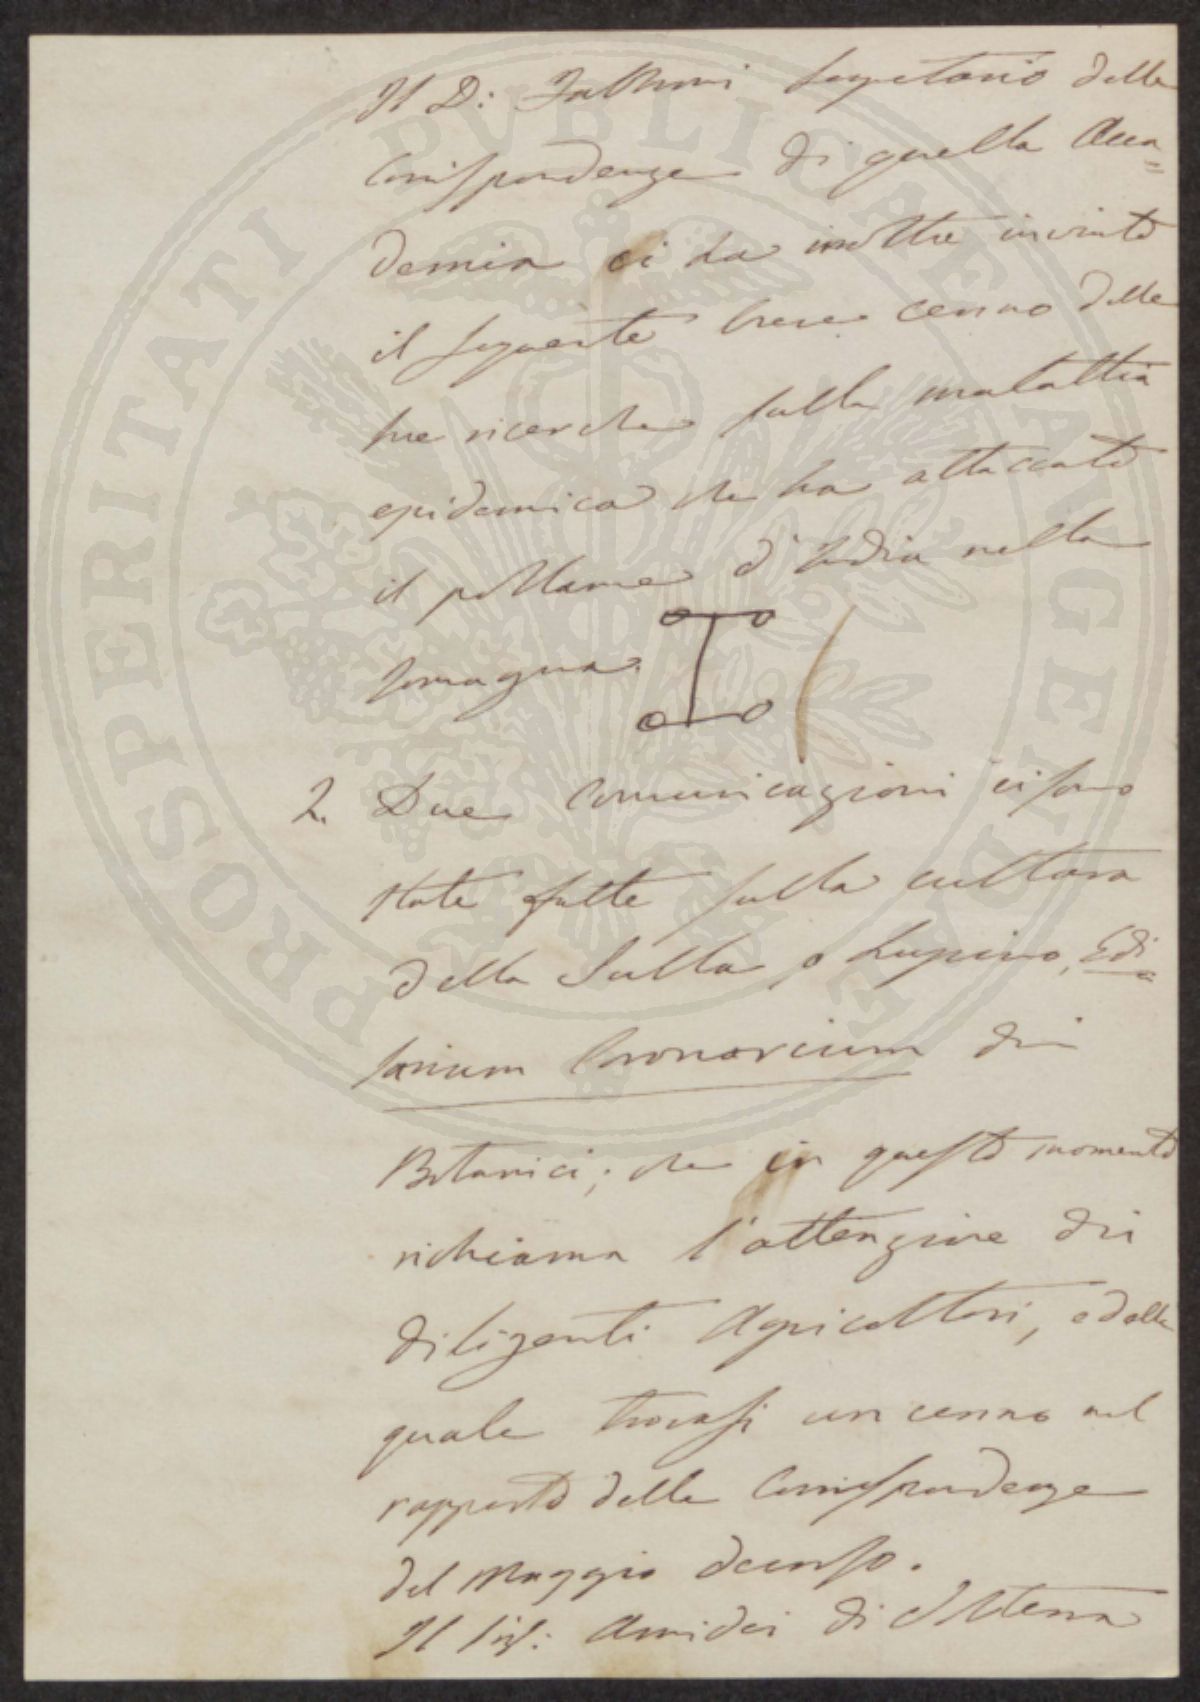 Il D: Segretario delle
Corrispondenze di quella Acca=
demia ci ha inoltre inviato
il seguente breve cenno delle
sue ricerche sulla malattia
epidemica che ha attaccato
il pollame d'India nella
romagna.
2. Due Comunicazioni ci sono
state fatte sulla cultura
della Sulla o Lupino, Edi=
sarium Coronarium dei
Botanici; che in questo momento
richiama l'attenzione dei
diligenti Agricoltori, e della
quale trovasi un cenno nel
rapporto delle Corrispondenze
del Maggio decorso.
Il Sig: Amidei di
PROSPERITATI PVBLICAE AVGENDAE